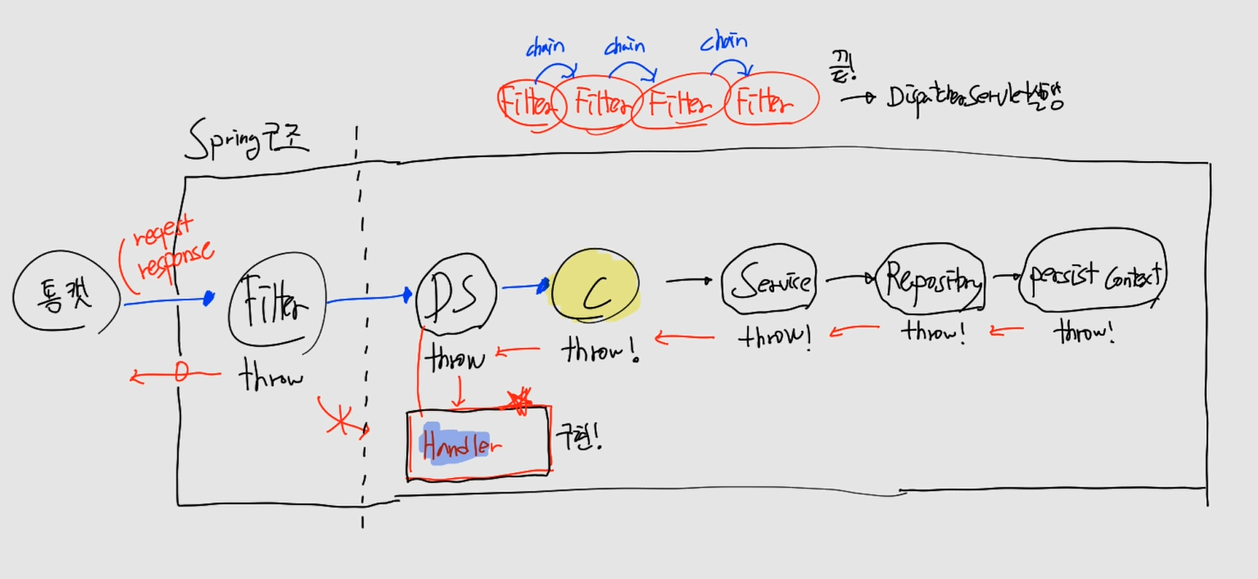 chain chain chain
Filter Filter Filter Filter
끝!
→ DispatcherServlet실행
Spring구조
reqest
response
톰캣
Filter
DS
C
Service
Repository
persist Context
throw
throw
throw!
throw!
throw!
throw!
Handler
구현!